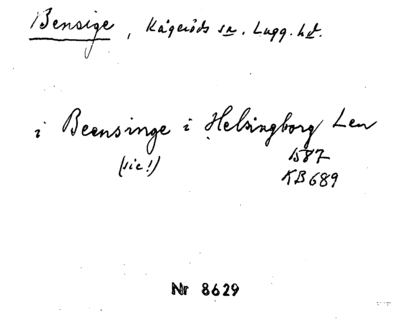 Bensige, Kågeröds sn. Lugg. hd.
i Beensinge i Helsingborg Len
(sic!) 1587
KB 689
Nr 8629